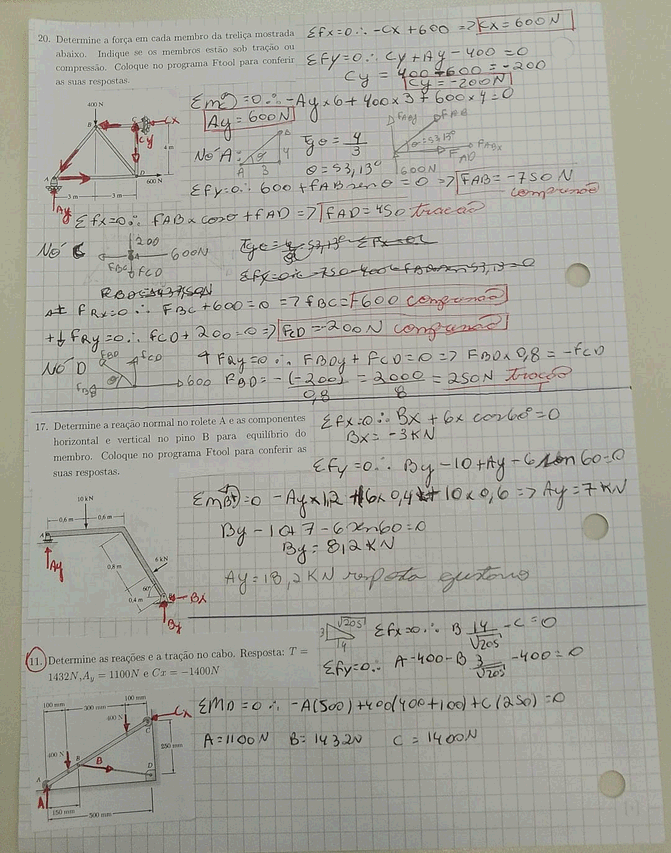 20. Determine a força em cada membro da treliça mostrada
abaixo. Indique se os membros estão sob tração ou
compressão. Coloque no programa Ftool para conferir
as suas respostas.
Σfx=0∴ -Cx+600 => Cx=600N
Σfy=0∴ Cy+Ay-400=0
Cy=400-600=-200
Cy=-200N
Σm=0∴ -Ay×6+400×3+600×4=0
Ay=600N
400 N
B
C
Cx
Cy
4 m
A
D
3 m
3 m
600 N
Ay
NÓ A:
B
4
A 3
Tgθ=4/3
θ=53,13°
FABy
FAB
θ=53,13°
FABx
FAD
600N
Σfy=0∴ 600+fABsenθ=0 => FAB=-750N
compressão
Σfx=0∴ fAB×cosθ+fAD => fAD=450 tração
NÓ C
200
600N
FBC
FCD
fRx=0∴ FBC+600=0 => fBC=-600 compressão
+↓ fRy=0∴ fCD+200=0 => FCD=-200N compressão
NÓ D
fBD
fCD
600
↑ FRy=0∴ FBDy+FCD=0 => FBD×0,8=-fCD
FBD=-(-200)/0,8=2000/8=250N tração
17. Determine a reação normal no rolete A e as componentes
horizontal e vertical no pino B para equilíbrio do
membro. Coloque no programa Ftool para conferir as
suas respostas.
Σfx=0∴ Bx+6x cos60°=0
Bx=-3KN
Σfy=0∴ By-10+Ay-6sen60=0
ΣmB=0 -Ay×1,2+6×0,4+10×0,6 => Ay=7KN
By-10+7-6sen60=0
By=8,2KN
10 kN
0,6 m
0,6 m
A
Ay
0,8 m
6 kN
60°
0,4 m
Bx
By
Ay=18,2KN resposta gustavo
11. Determine as reações e a tração no cabo. Resposta: T =
1432N, Ay = 1100N e Cx = −1400N
√205
3
14
Σfx=0∴ B 14/√205 -C=0
Σfy=0∴ A-400-B 3/√205 -400=0
ΣMD=0∴ -A(500)+400(400+100)+C(250)=0
A=1100N B=1432N C=1400N
100 mm
300 mm
100 mm
400 N
C
Cx
400 N
250 mm
B
B
D
A
A
150 mm
500 mm